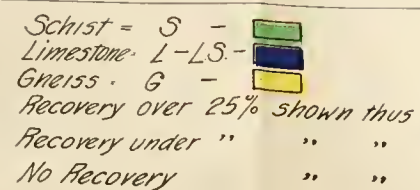 Schist = S -
Limestone - L - LS. -
Gneiss - G -
Recovery over 25% shown thus
Recovery under " " "
No Recovery " "